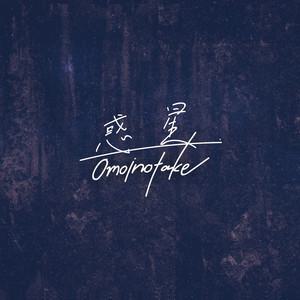 惑星
Omoinotake